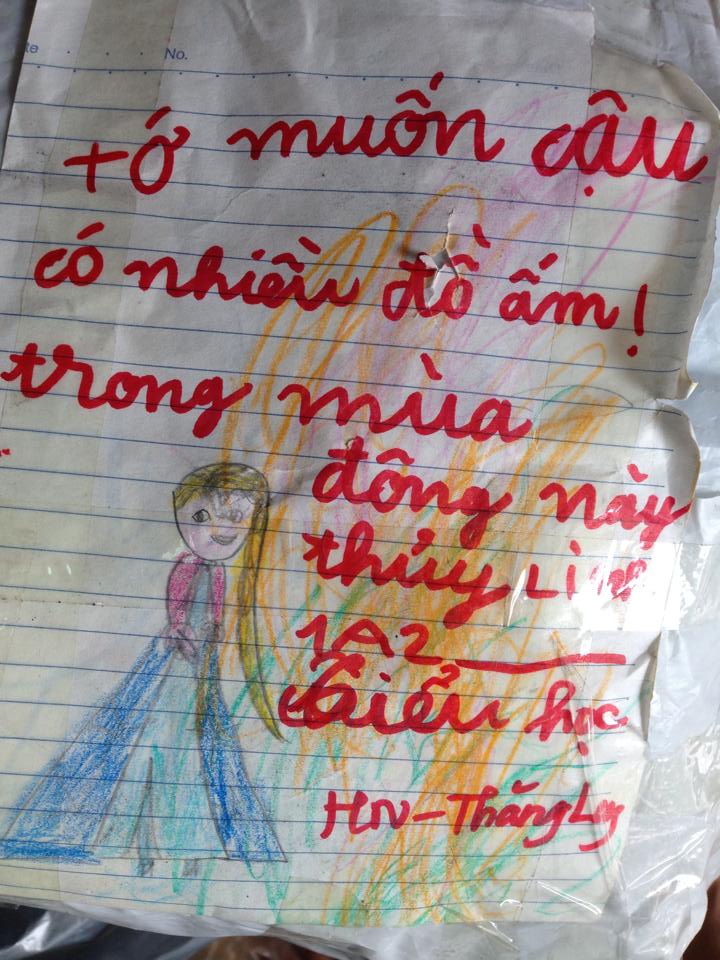 No.
tớ muốn cậu
có nhiều đồ ấm!
trong mùa
đông này
thủy Linh
1A2
tiểu học
HN-Thăng Long